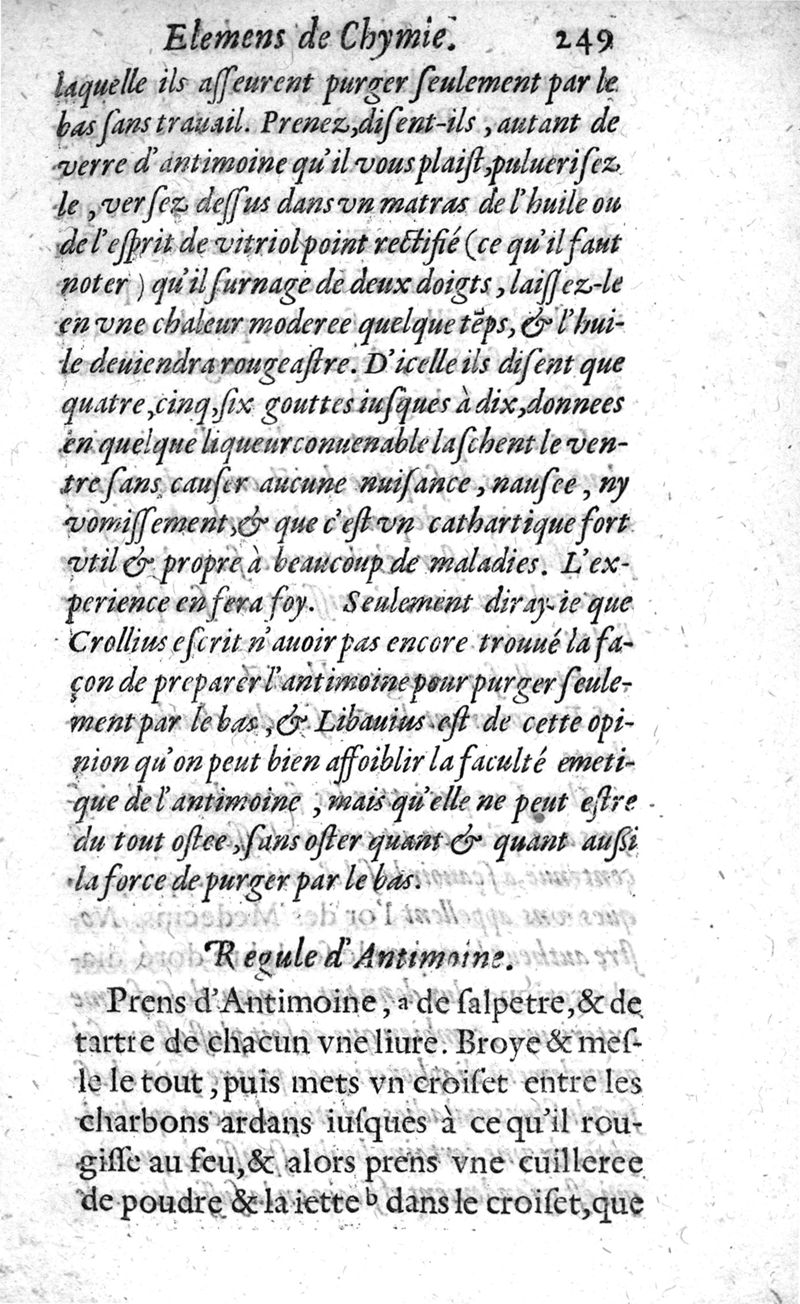 Elemens de Chymie. 249
laquelle ils aſſeurent purger ſeulement par le
bas ſans trauail. Prenez, diſent-ils, autant de
verre d'antimoine qu'il vous plaiſt, puluerisez
le, verſez deſſus dans vn matras de l'huile ou
de l'eſprit de vitriol point rectifié (ce qu'il faut
noter) qu'il ſurnage de deux doigts, laiſſez-le
en vne chaleur moderee quelque tẽps, & l'hui-
le deuiendra rougeaſtre. D'icelle ils diſent que
quatre, cinq, ſix gouttes iuſques à dix, donnees
en quelque liqueur conuenable laſchent le ven-
tre ſans cauſer aucune nuiſance, nauſee, ny
vomiſſement, & que c'eſt vn cathartique fort
vtil & propre à beaucoup de maladies. L'ex-
perience en fera foy. Seulement diray-ie que
Crollius eſcrit n'auoir pas encore trouué la fa-
çon de preparer l'antimoine pour purger ſeule-
ment par le bas, & Libauius eſt de cette opi-
nion qu'on peut bien affoiblir la faculté emeti-
que de l'antimoine, mais qu'elle ne peut eſtre
du tout oſtee, ſans oſter quant & quant auſſi
la force de purger par le bas.
Regule d'Antimoine.
Prens d'Antimoine, a de ſalpetre, & de
tartre de chacun vne liure. Broye & meſ-
le le tout, puis mets vn croiſet entre les
charbons ardans iuſques à ce qu'il rou-
giſſe au feu, & alors prens vne cuilleree
de poudre & la iette b dans le croiſet, que